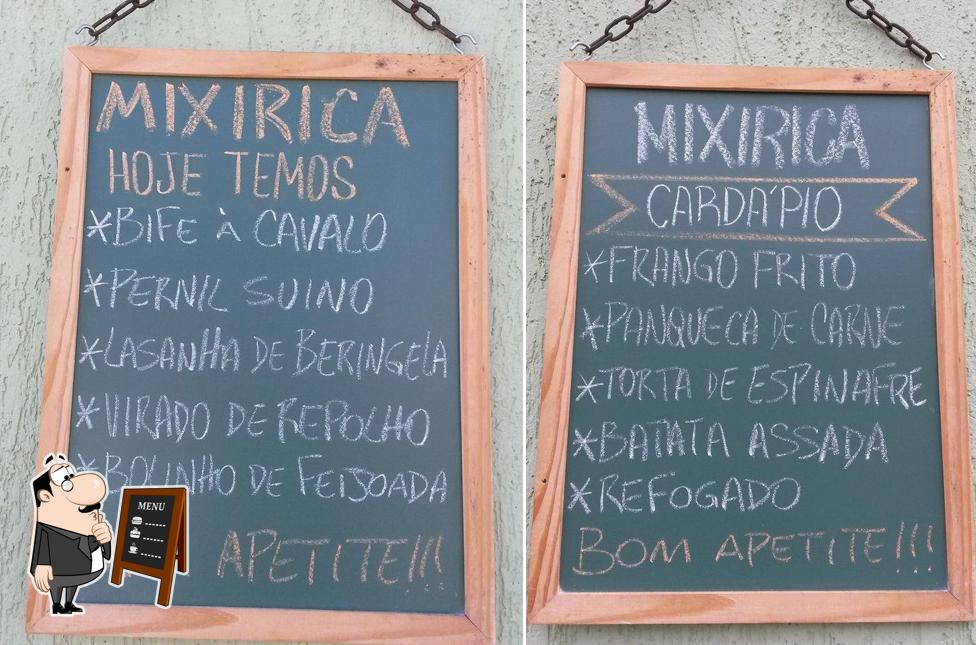 MIXIRICA
HOJE TEMOS
*BIFE À CAVALO
*PERNIL SUINO
*LASANHA DE BERINGELA
*VIRADO DE REPOLHO
*BOLINHO DE FEIJOADA
APETITE!!!
MENU
MIXIRICA
CARDÁPIO
*FRANGO FRITO
*PANQUECA DE CARNE
*TORTA DE ESPINAFRE
*BATATA ASSADA
*REFOGADO
BOM APETITE!!!